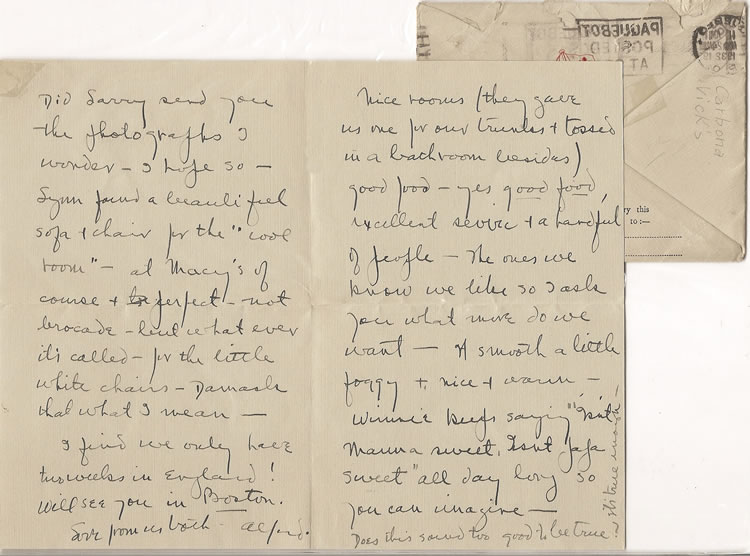 Did Larry send you
the photographs I
wonder — I hope so —
Lynn found a beautiful
sofa + chair for the "cool
room" — at Macy's of
course + perfect — not
brocade — but what ever
it's called — for the little
white chairs — Damask
that what I mean —
I find we only have
two weeks in England!
Will see you in Boston.
Love from us both
Nice rooms (they gave
us one for our trunks + tossed
in a bathroom besides)
good food — yes good food,
excellent service + a handful
of people — The ones we
know we like so I ask
you what more do we
want — A smooth a little
foggy + nice + warm —
Winnie keeps saying "Isn't
Mama sweet, Isn't Papa
sweet" all day long so
you can imagine —
Does this sound too good to be true
its true enough
PAQUEBOT
POSTED
AT
Carbona
Vick's
ry this
to :—